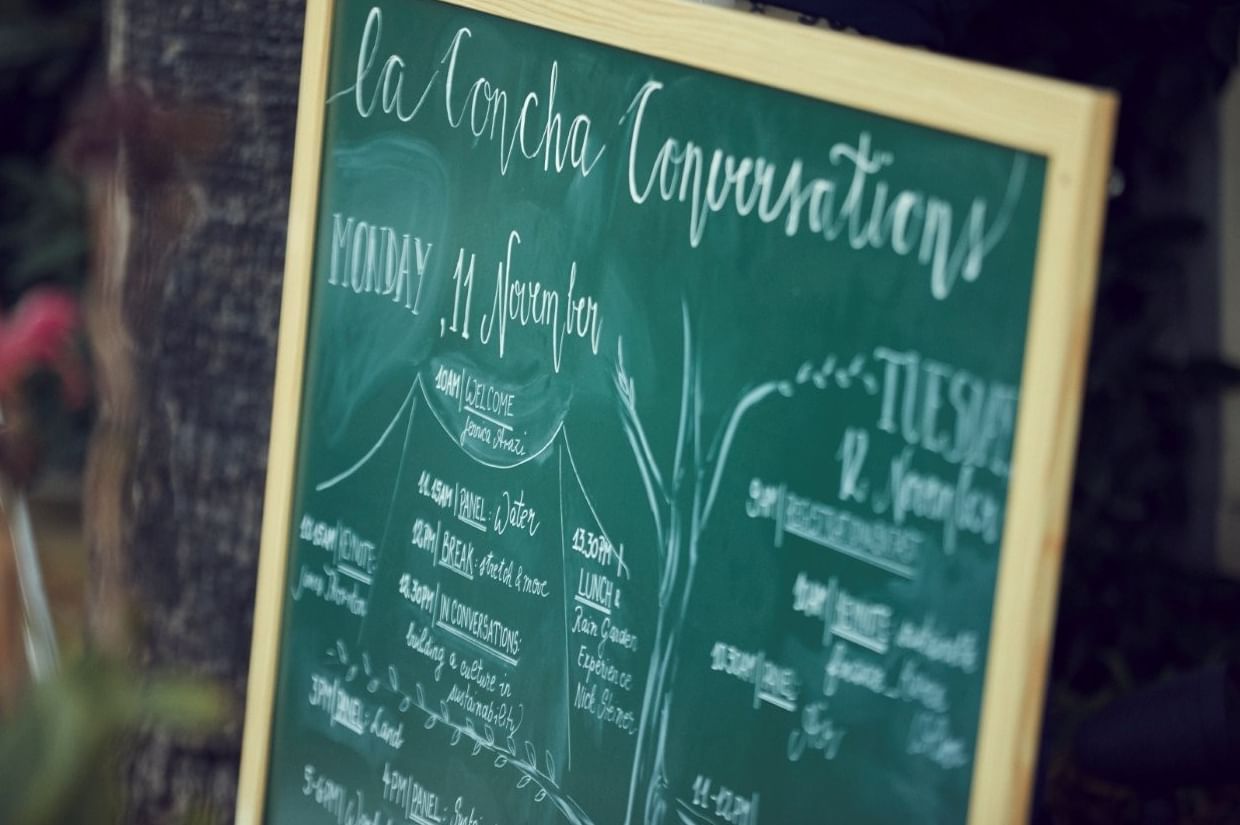 la Concha Conversations
MONDAY, 11 November
10AM | WELCOME
Jessica Arazi
10.15AM | KEYNOTE:
James Thornton
11.15AM | PANEL: Water
12PM | BREAK: stretch & move
12.30PM | IN CONVERSATIONS:
building a culture in
sustainability
13.30PM
LUNCH &
Rain Garden
Experience
Nick Steiner
3PM | PANEL: Land
4PM | PANEL:
5-6PM |
TUESDAY
12 November
9AM |
10AM | KEYNOTE:
10.30AM |
11-12PM |